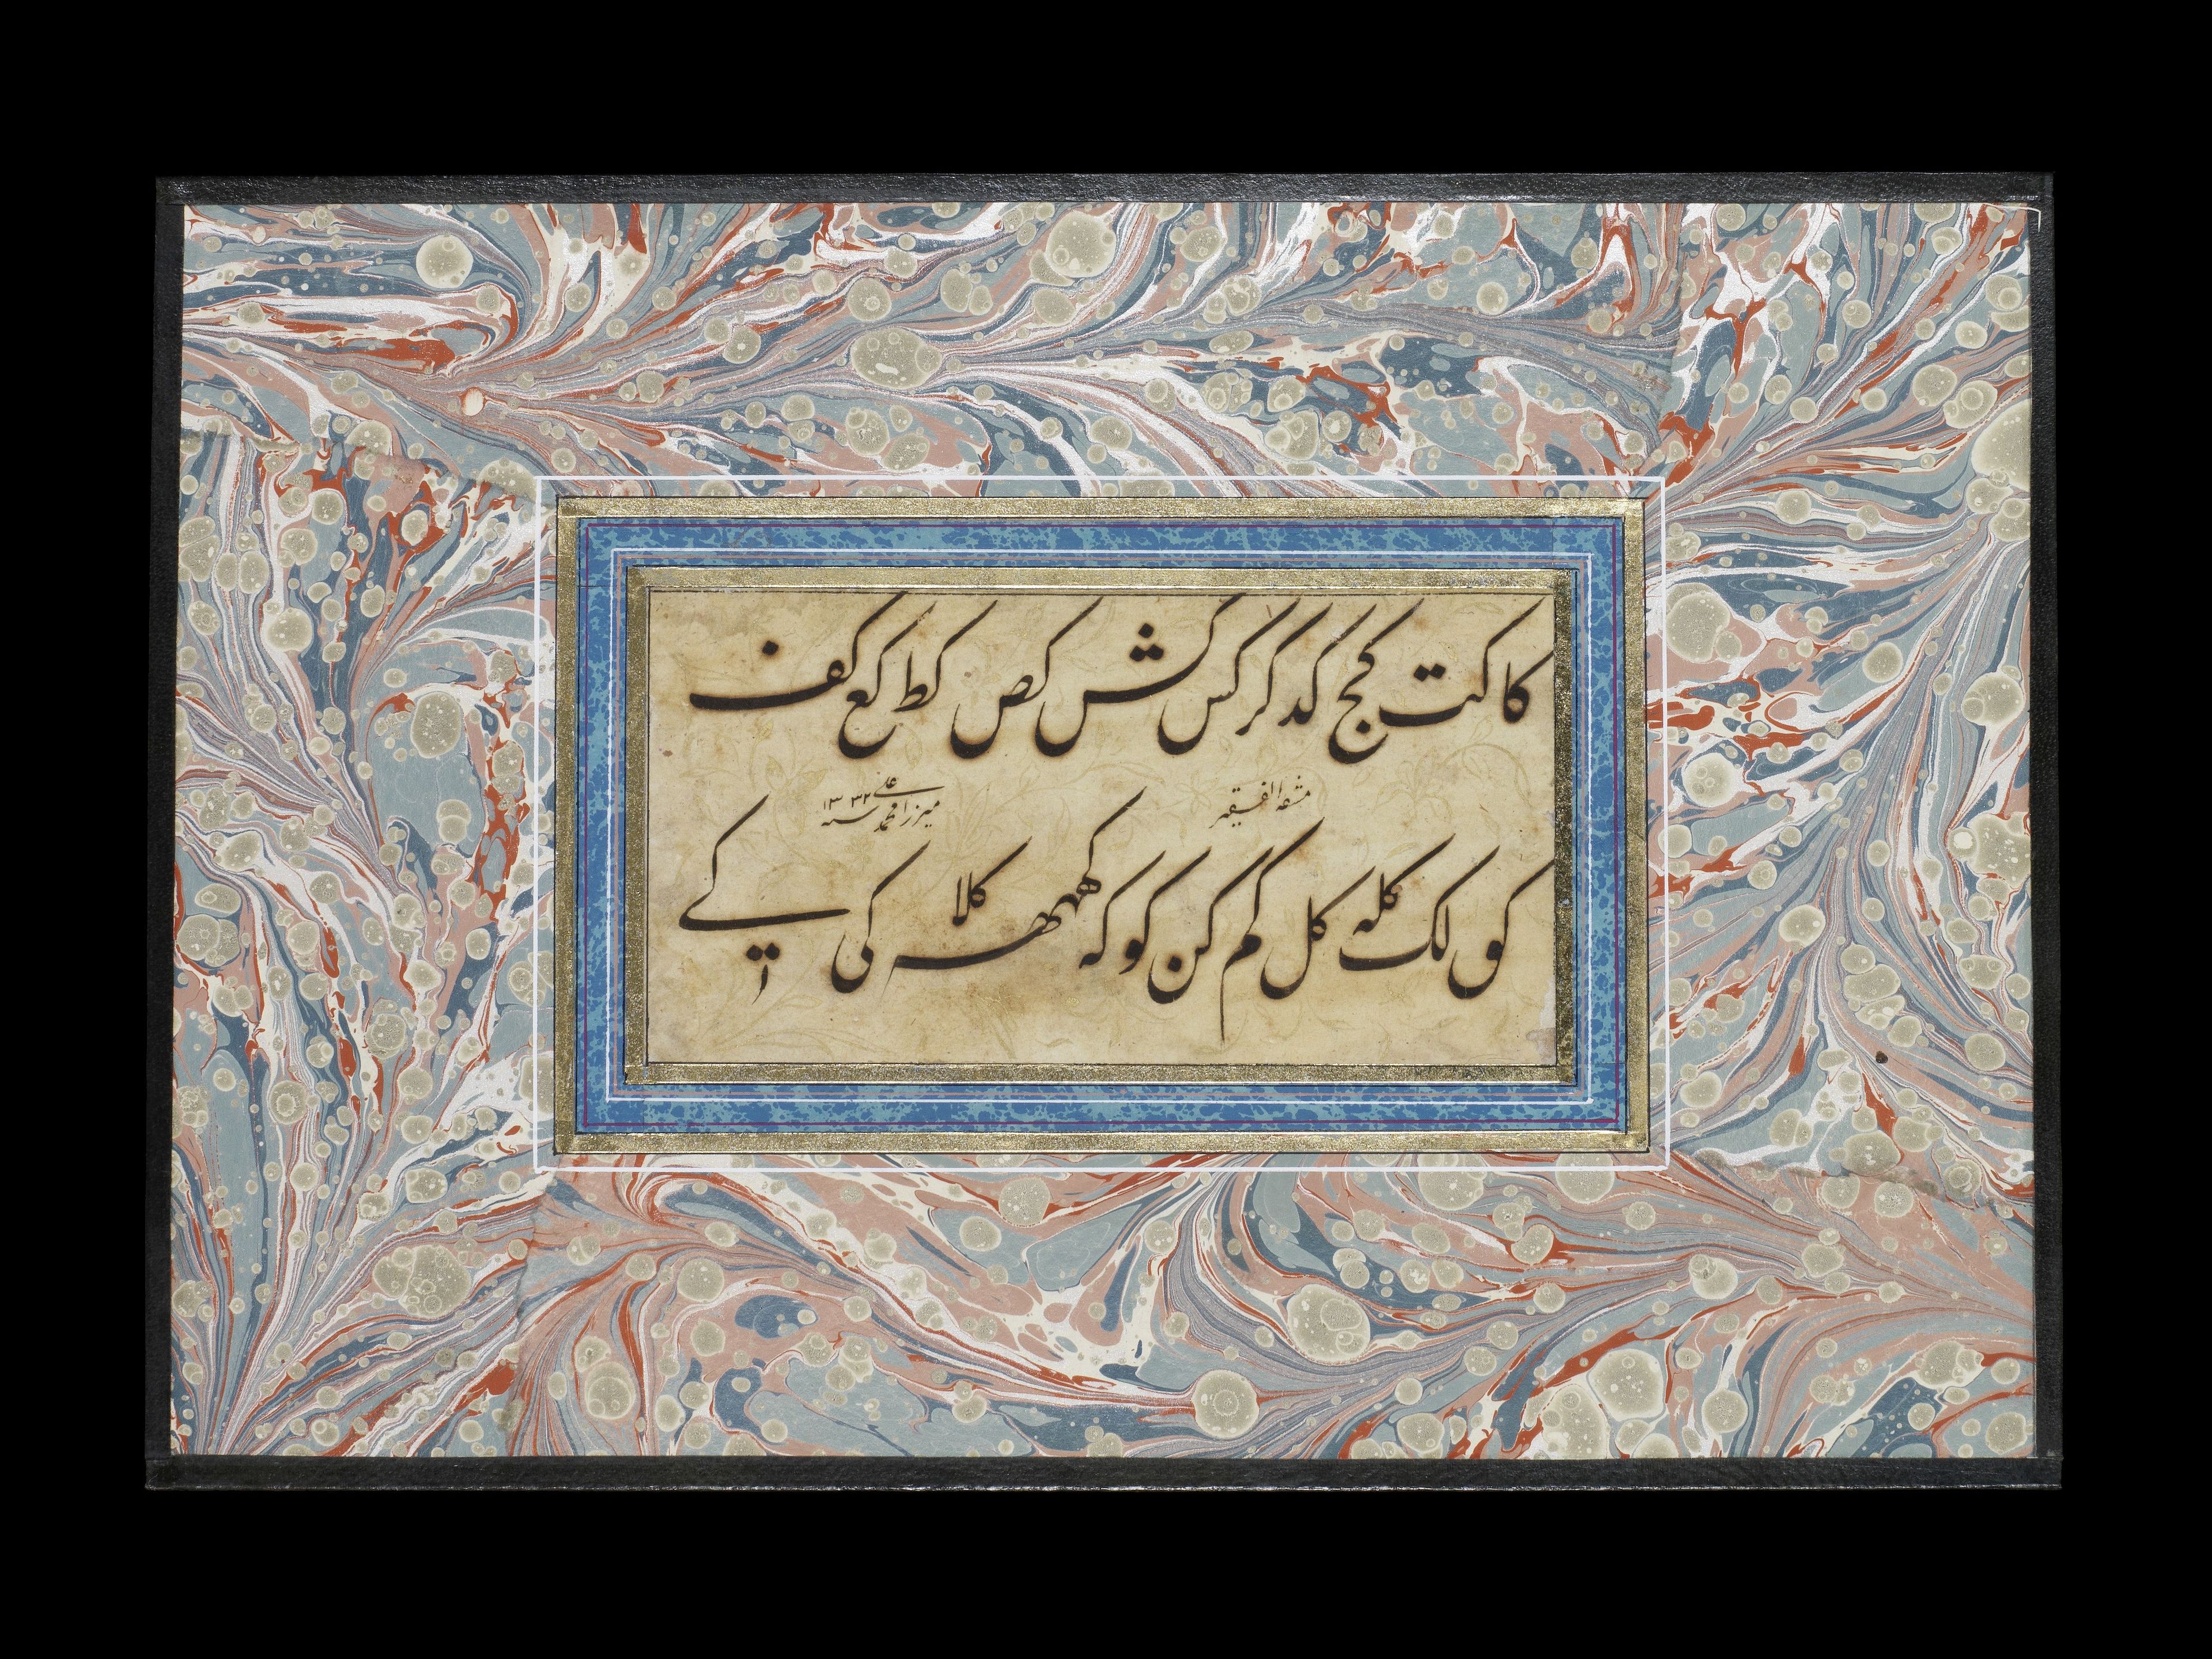 کا کت کج کد کر کس کش کص کط کع کف
مشقه الفقیر میرزا محمد علی سنه ۱۳۳۲
کو لک کله کل کم کن کو که کهه‍هر کلا کی کے